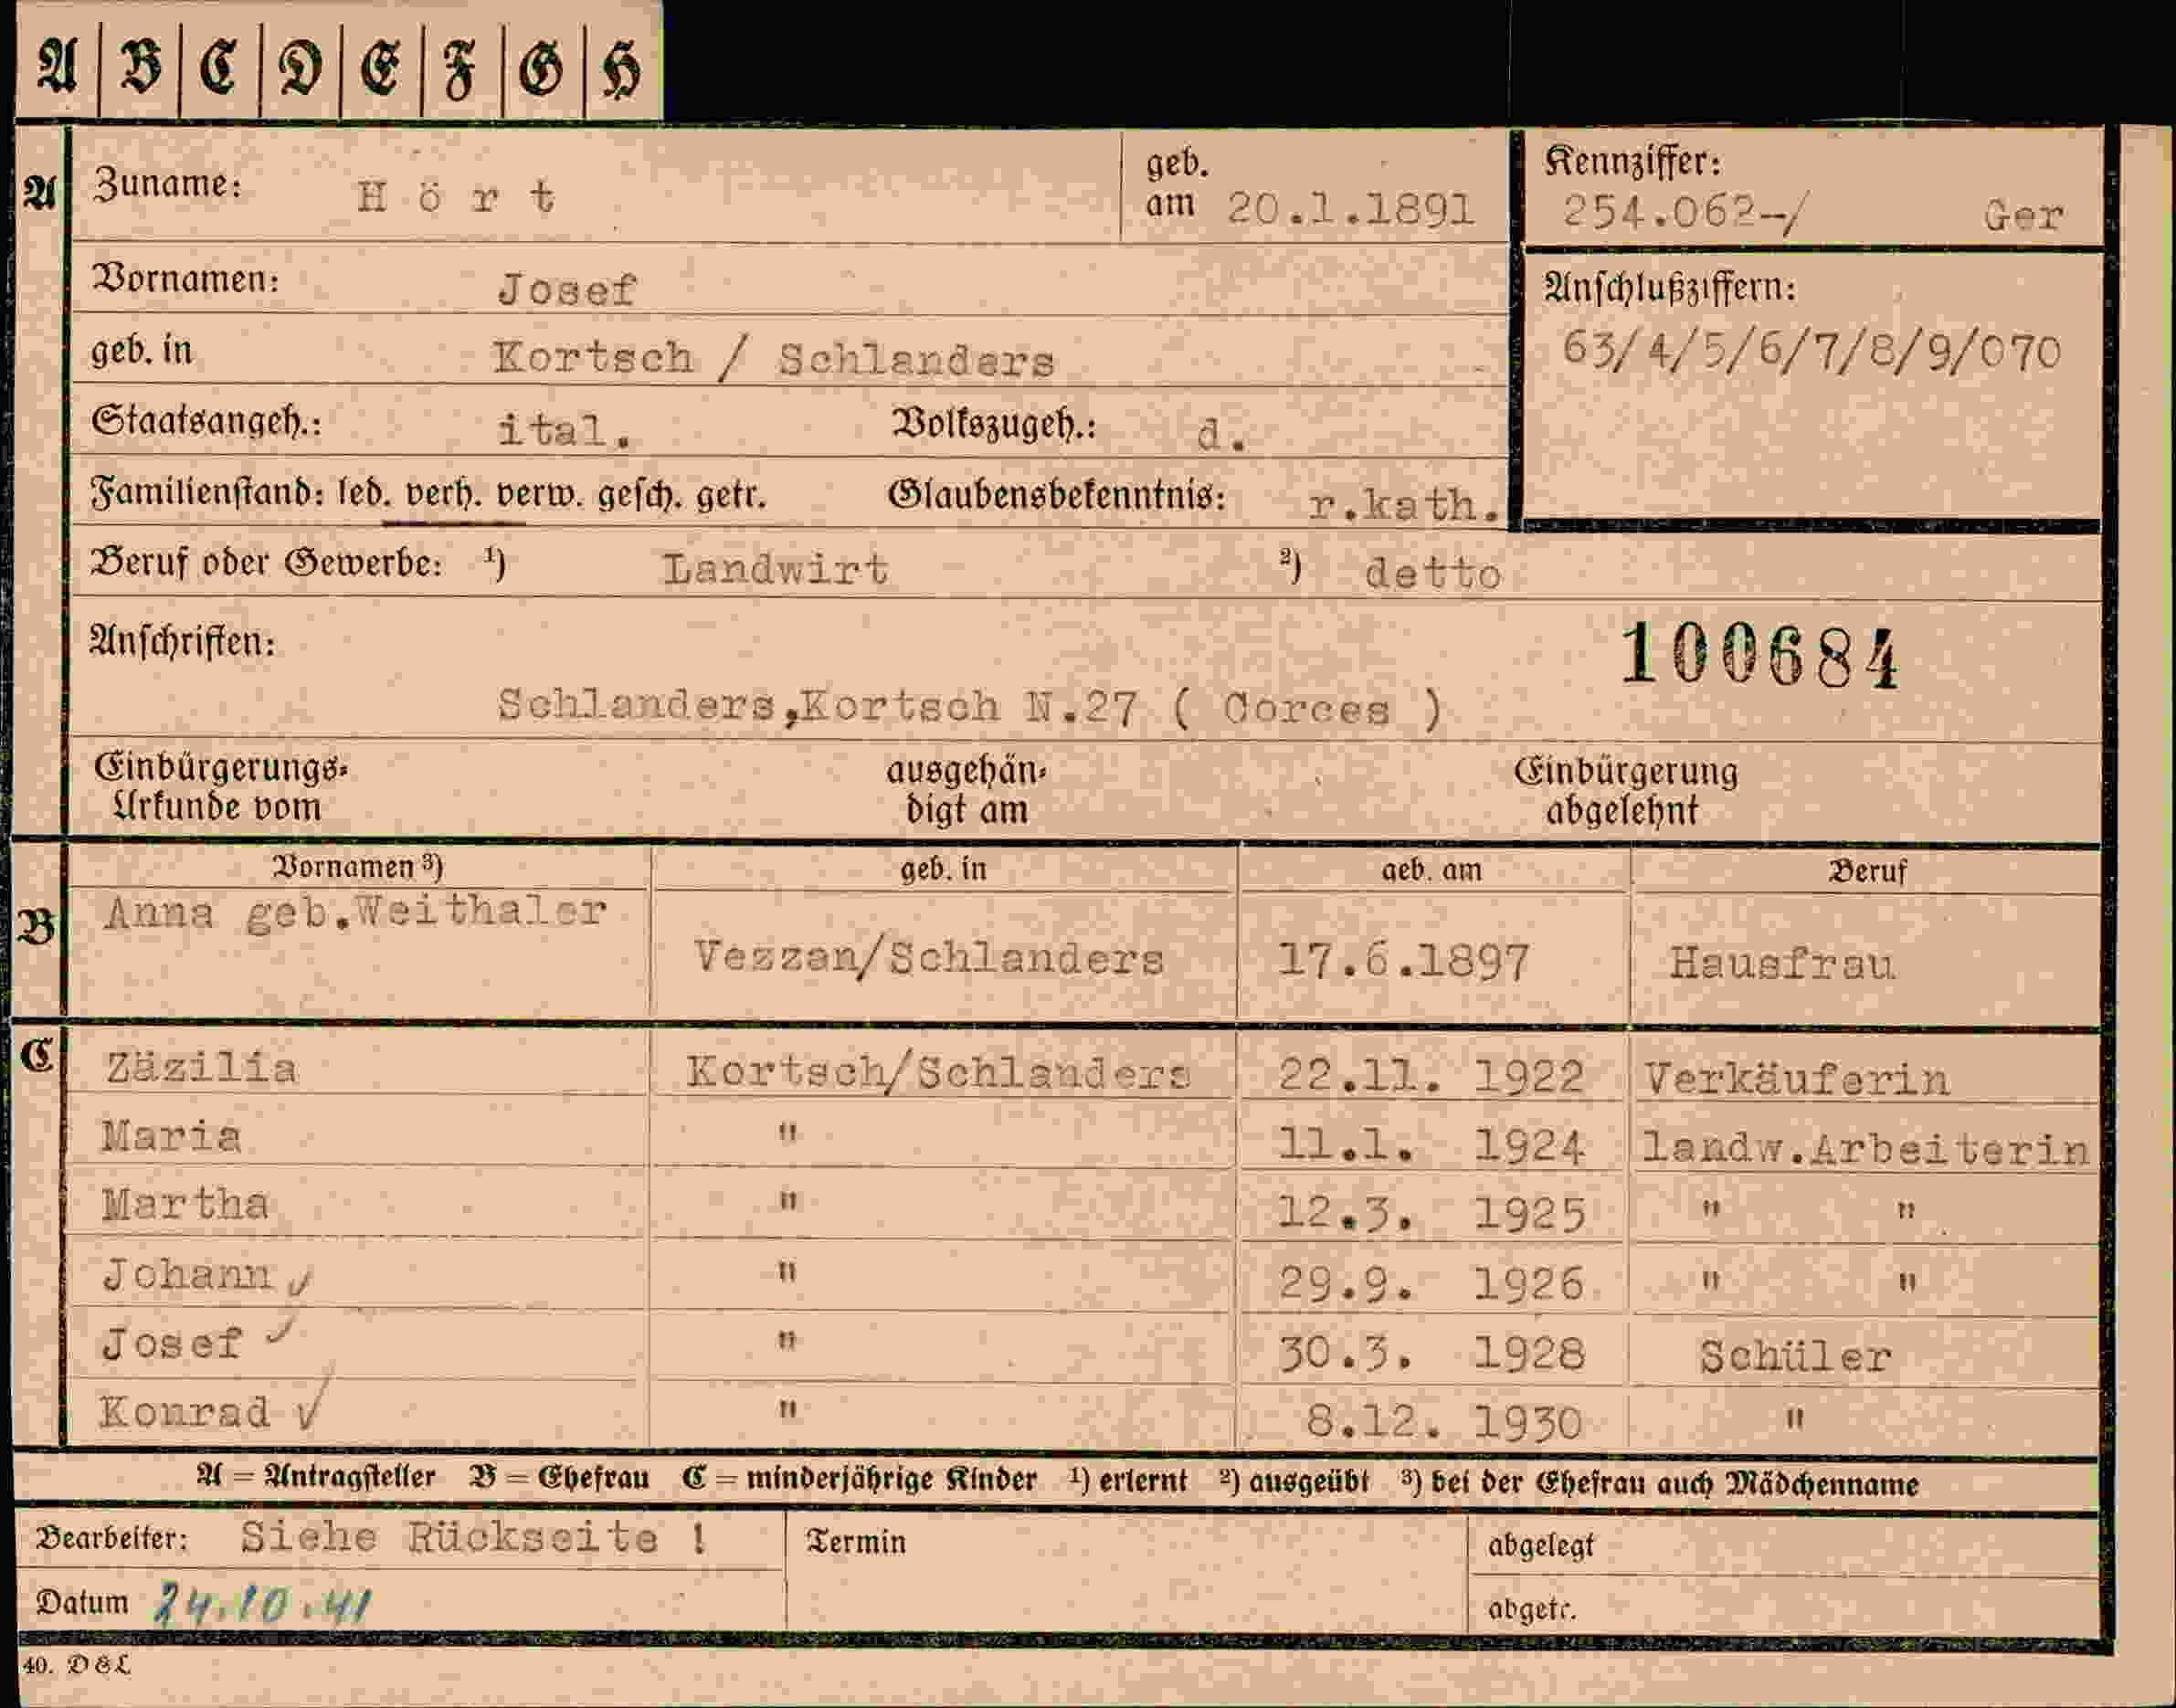 A | B | C | D | E | F | G | H
A Zuname: Hört geb. am 20.1.1891 Kennziffer: 254.062-/ Ger
Vornamen: Josef Anschlußziffern:
geb. in Kortsch / Schlanders 63/4/5/6/7/8/9/070
Staatsangeh.: ital. Volkszugeh.: d.
Familienstand: led. verh. verw. gesch. getr. Glaubensbekenntnis: r.kath.
Beruf oder Gewerbe: ¹) Landwirt ²) detto
Anschriften: 100684
Schlanders,Kortsch N.27 ( Corces )
Einbürgerungs- ausgehän- Einbürgerung
Urkunde vom digt am abgelehnt
Vornamen ³) geb. in geb. am Beruf
B Anna geb.Weithaler
Vezzan/Schlanders 17.6.1897 Hausfrau
C Zäzilia Kortsch/Schlanders 22.11. 1922 Verkäuferin
Maria " 11.1. 1924 landw.Arbeiterin
Martha " 12.3. 1925 " "
Johann " 29.9. 1926 " "
Josef " 30.3. 1928 Schüler
Konrad " 8.12. 1930 "
A = Antragsteller B = Ehefrau C = minderjährige Kinder ¹) erlernt ²) ausgeübt ³) bei der Ehefrau auch Mädchenname
Bearbeiter: Siehe Rückseite ! Termin abgelegt
Datum 24.10.41 abgetr.
40. D&L